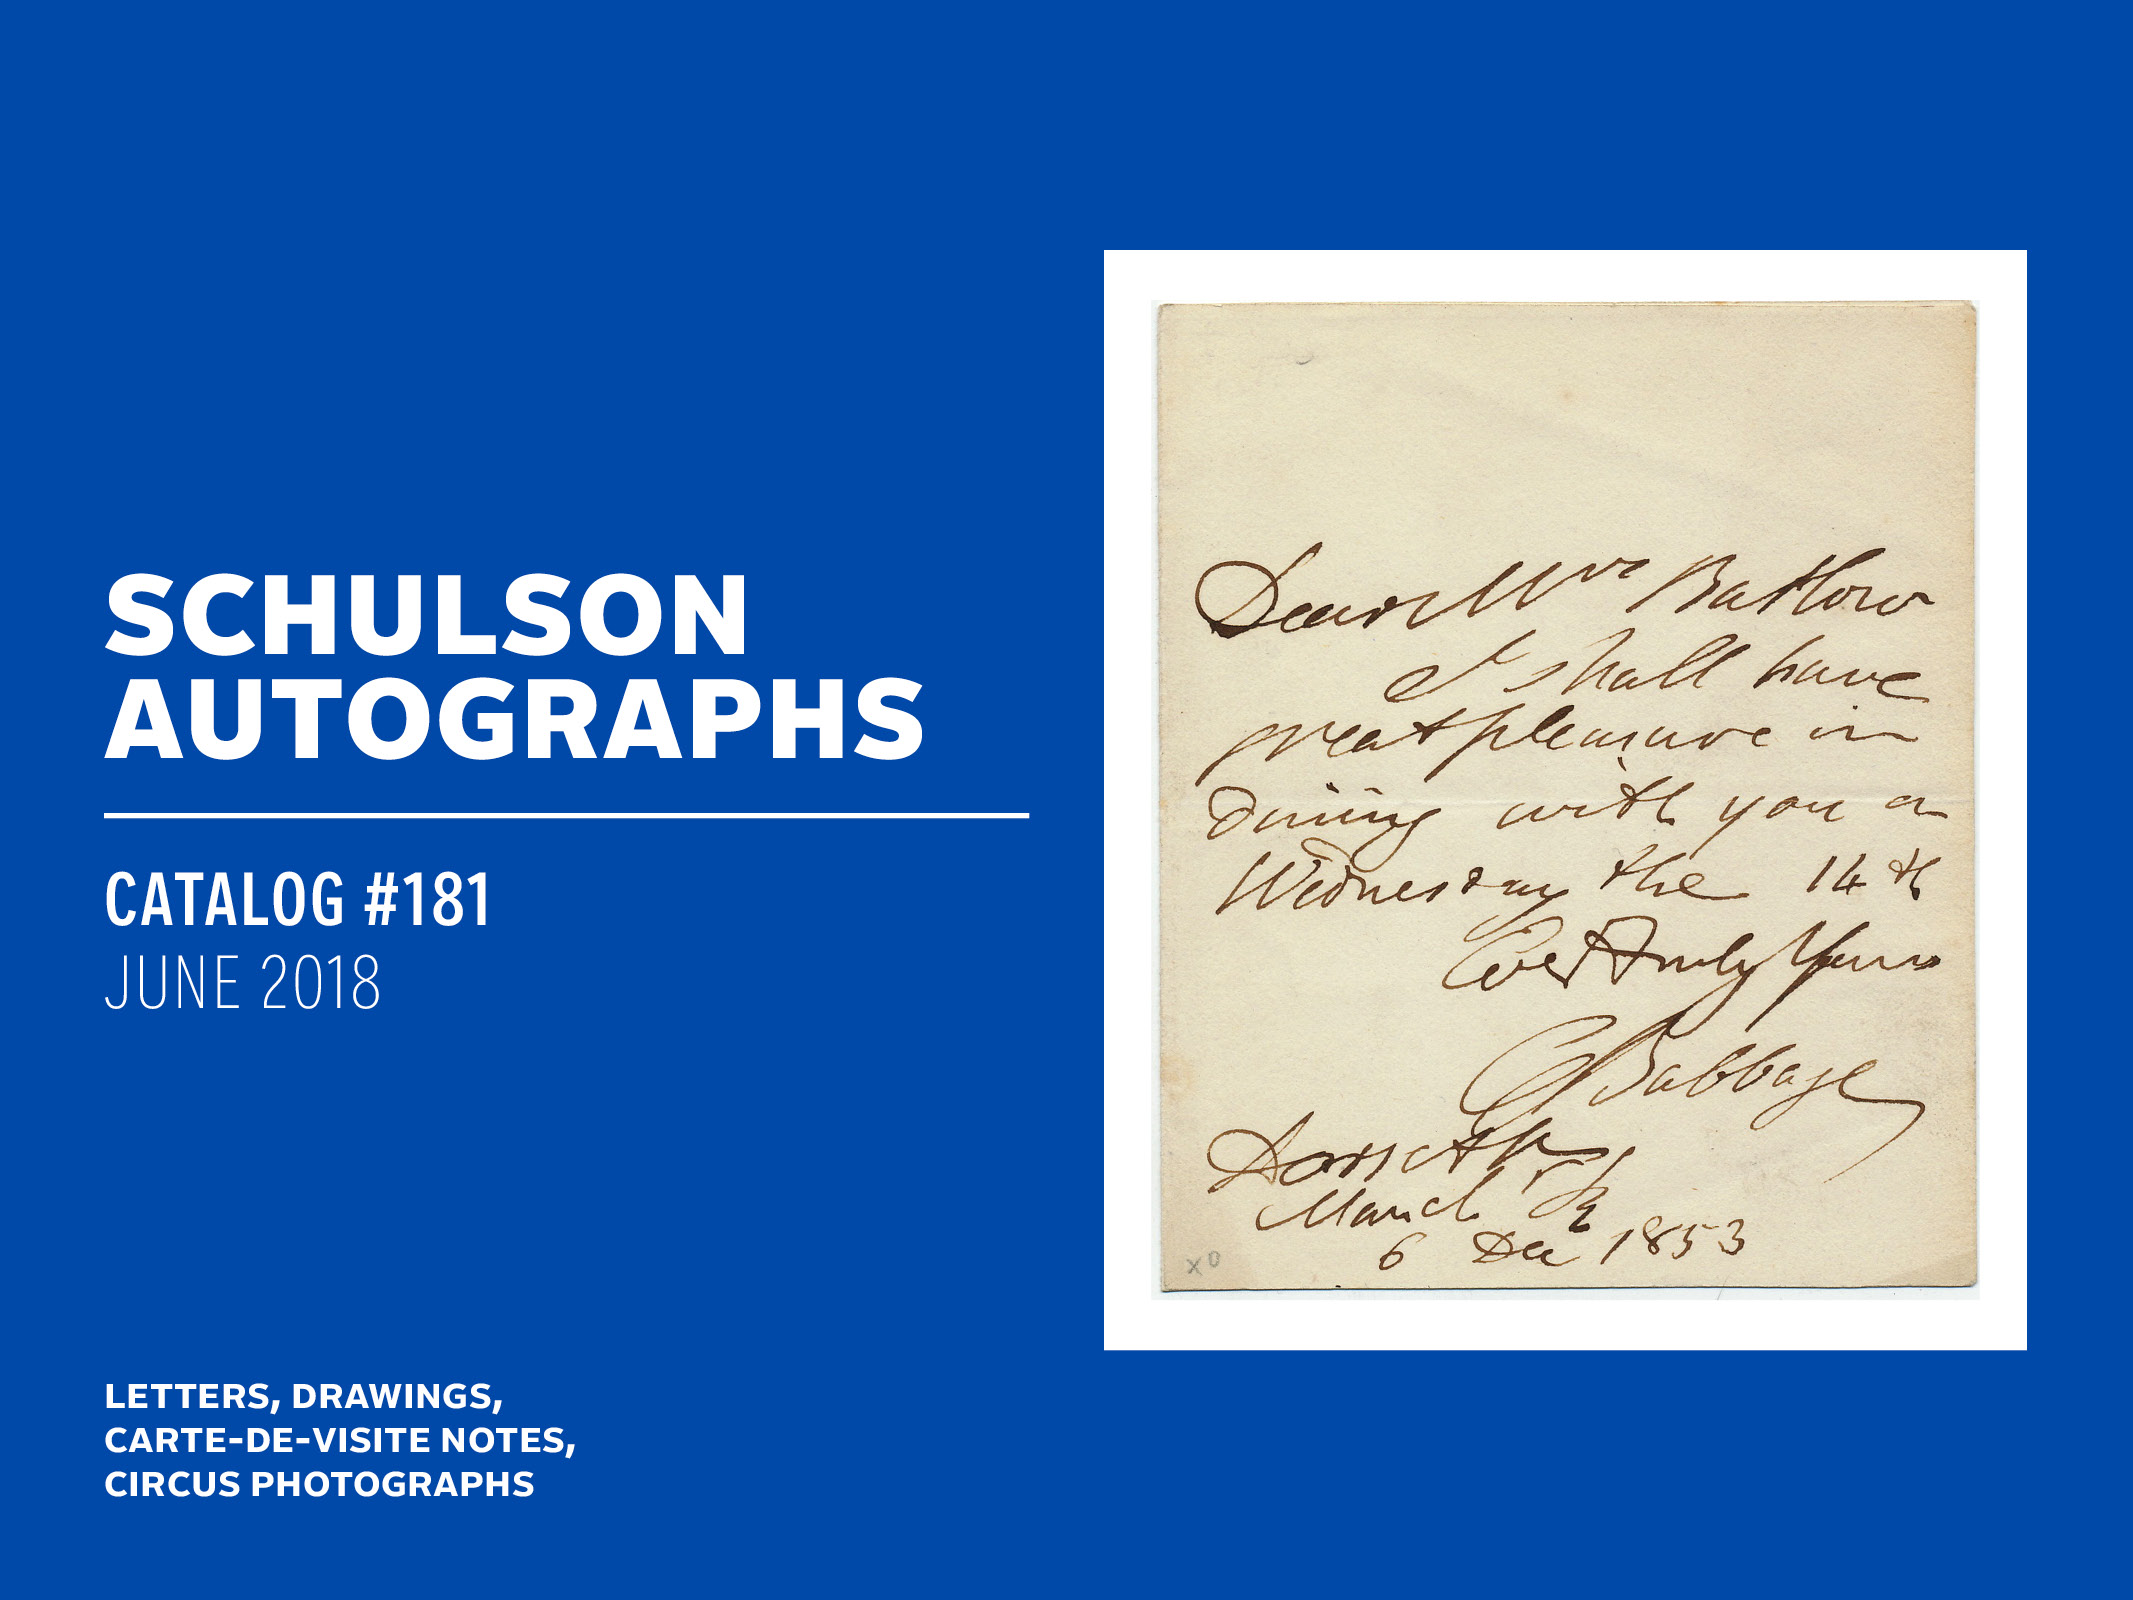 SCHULSON
AUTOGRAPHS
CATALOG #181
JUNE 2018
LETTERS, DRAWINGS,
CARTE-DE-VISITE NOTES,
CIRCUS PHOTOGRAPHS
Dear Mrs
I shall have
great pleasure in
dining with you on
Wednesday the 14th
Ever truly Yours
C Babbage
Dorset
March
6 Dec 1853